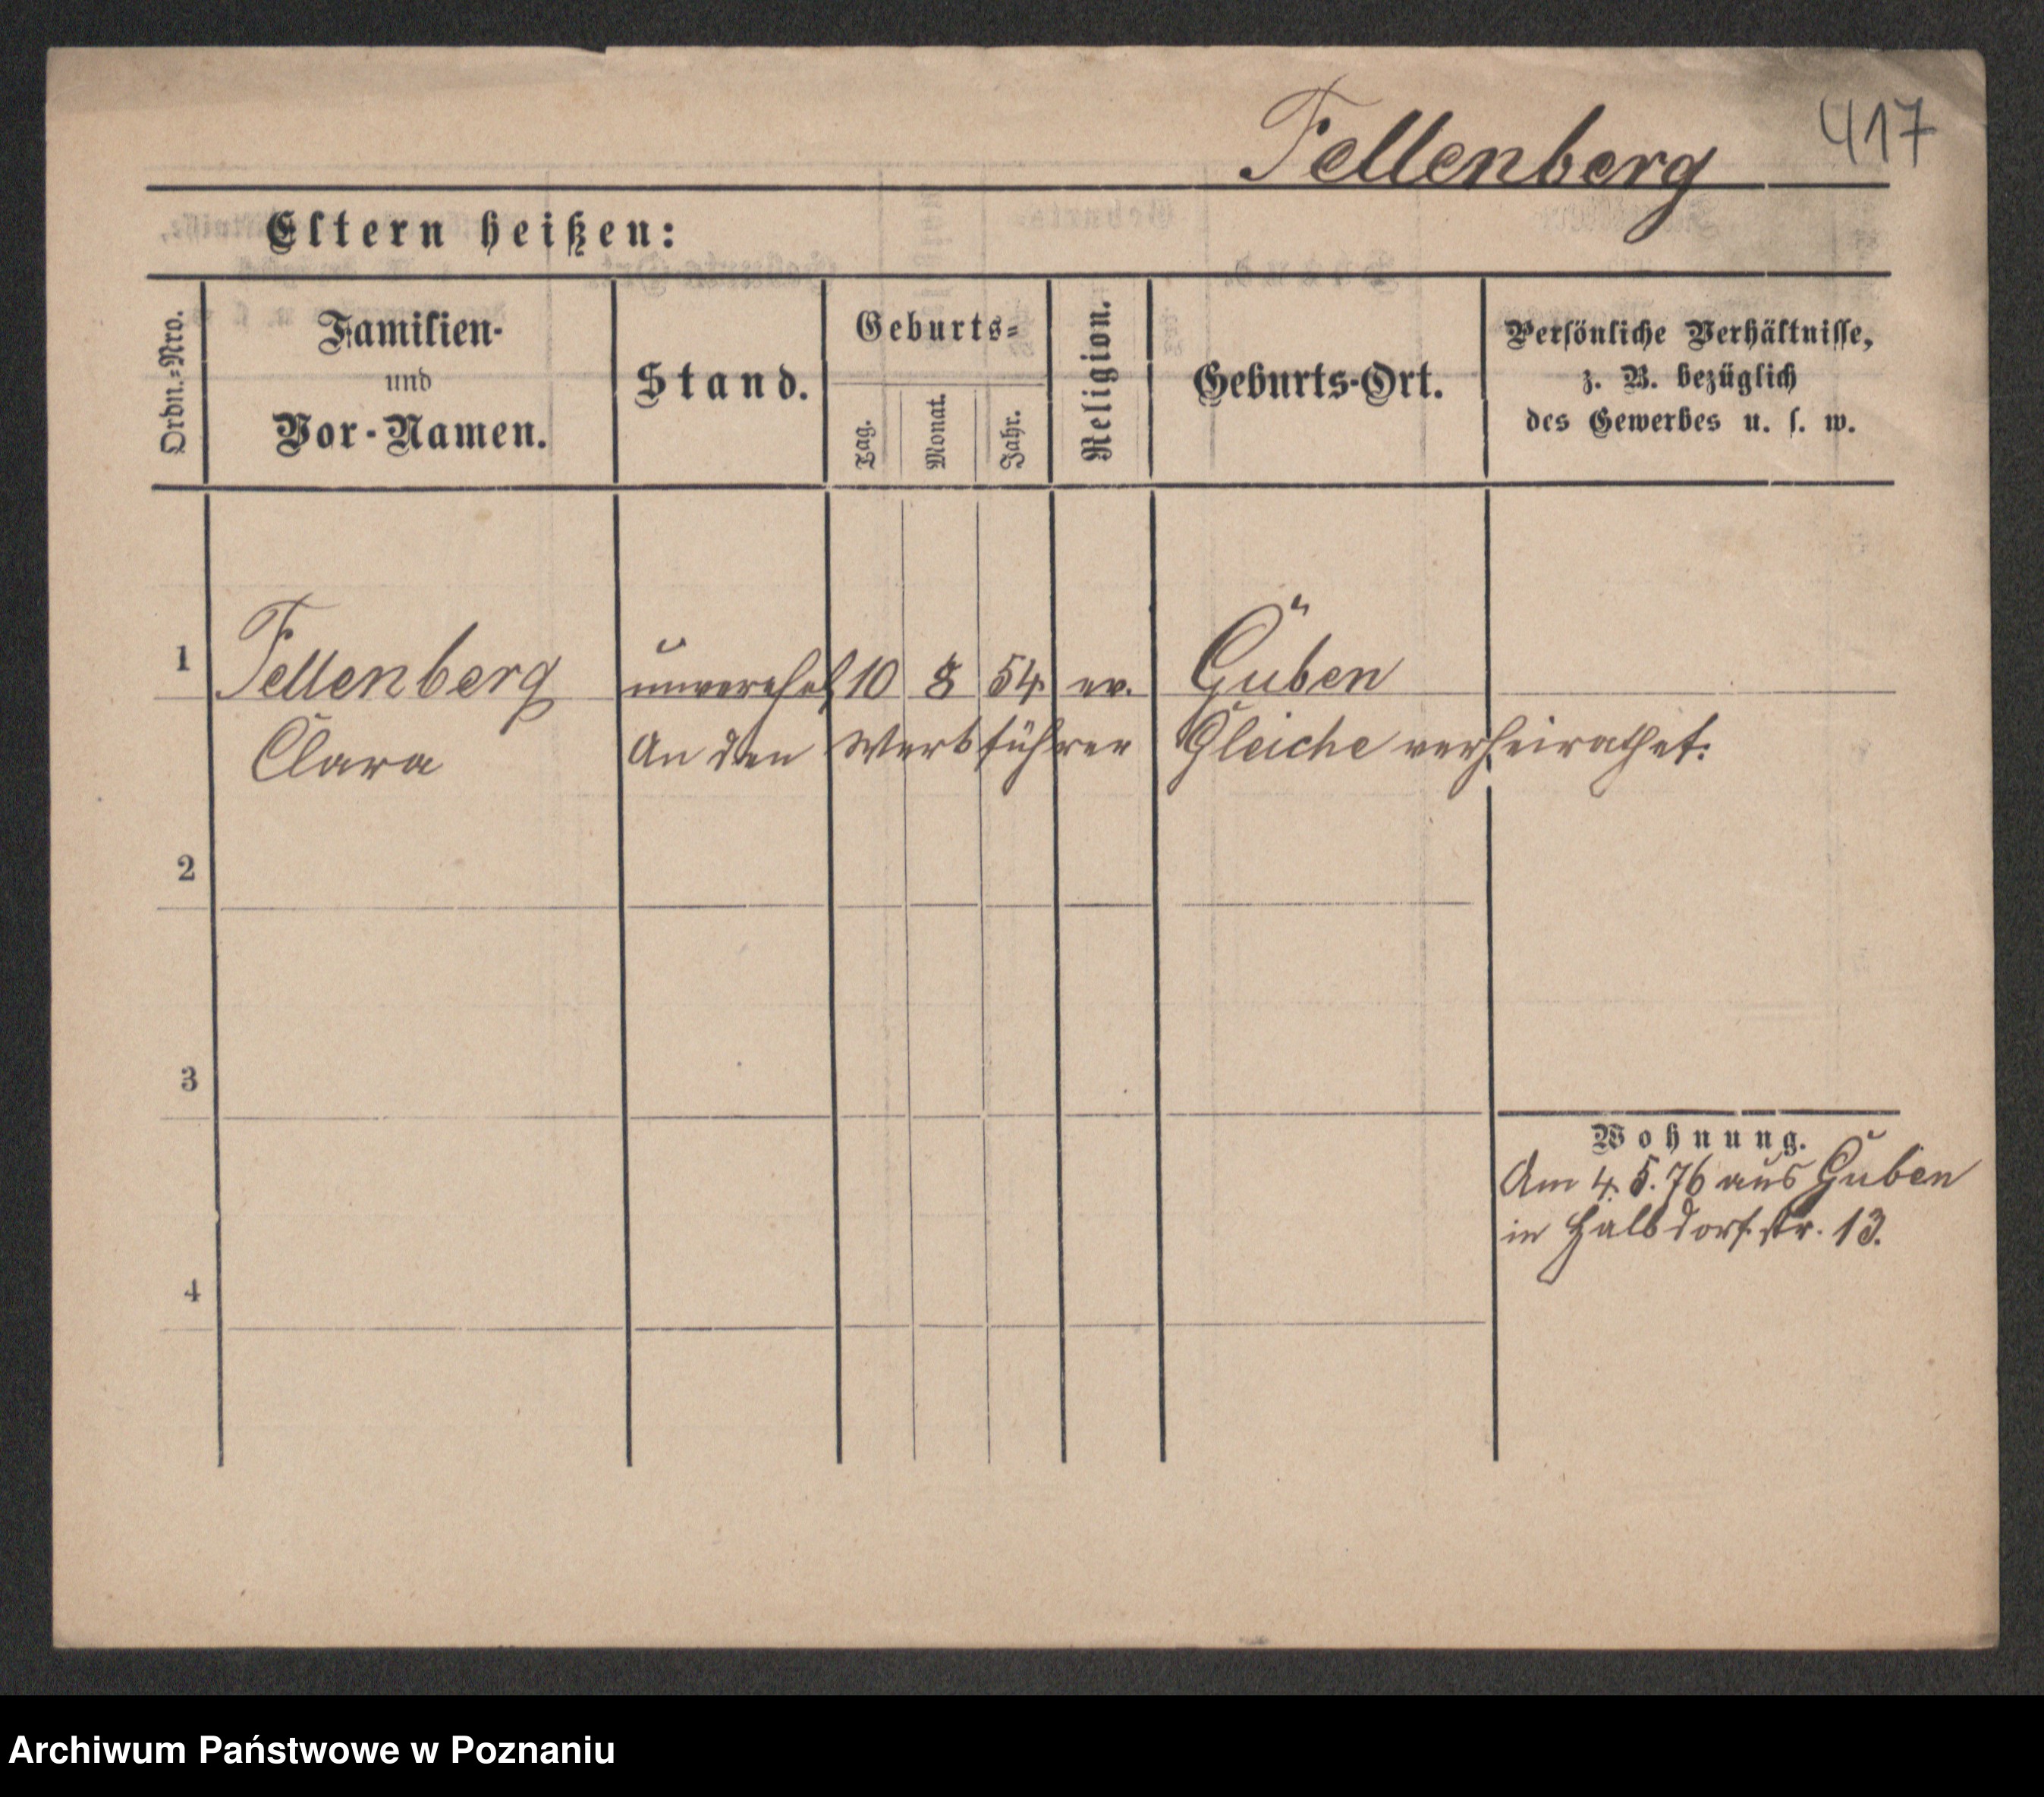 417
Fellenberg
Eltern heißen:
Ordn.=Nro.
Familien-
und
Vor-Namen.
Stand.
Geburts=
Tag.
Monat.
Jahr.
Religion.
Geburts-Ort.
Persönliche Verhältnisse,
z. B. bezüglich
des Gewerbes u. s. w.
1 Fellenberg unverehel 10 8 54. ev. Guben
Clara An den Werkführer Gleiche verheirathet.
2
3
Wohnung.
Am 4. 5. 76 aus Guben
in Halbdorfstr. 13.
4
Archiwum Państwowe w Poznaniu